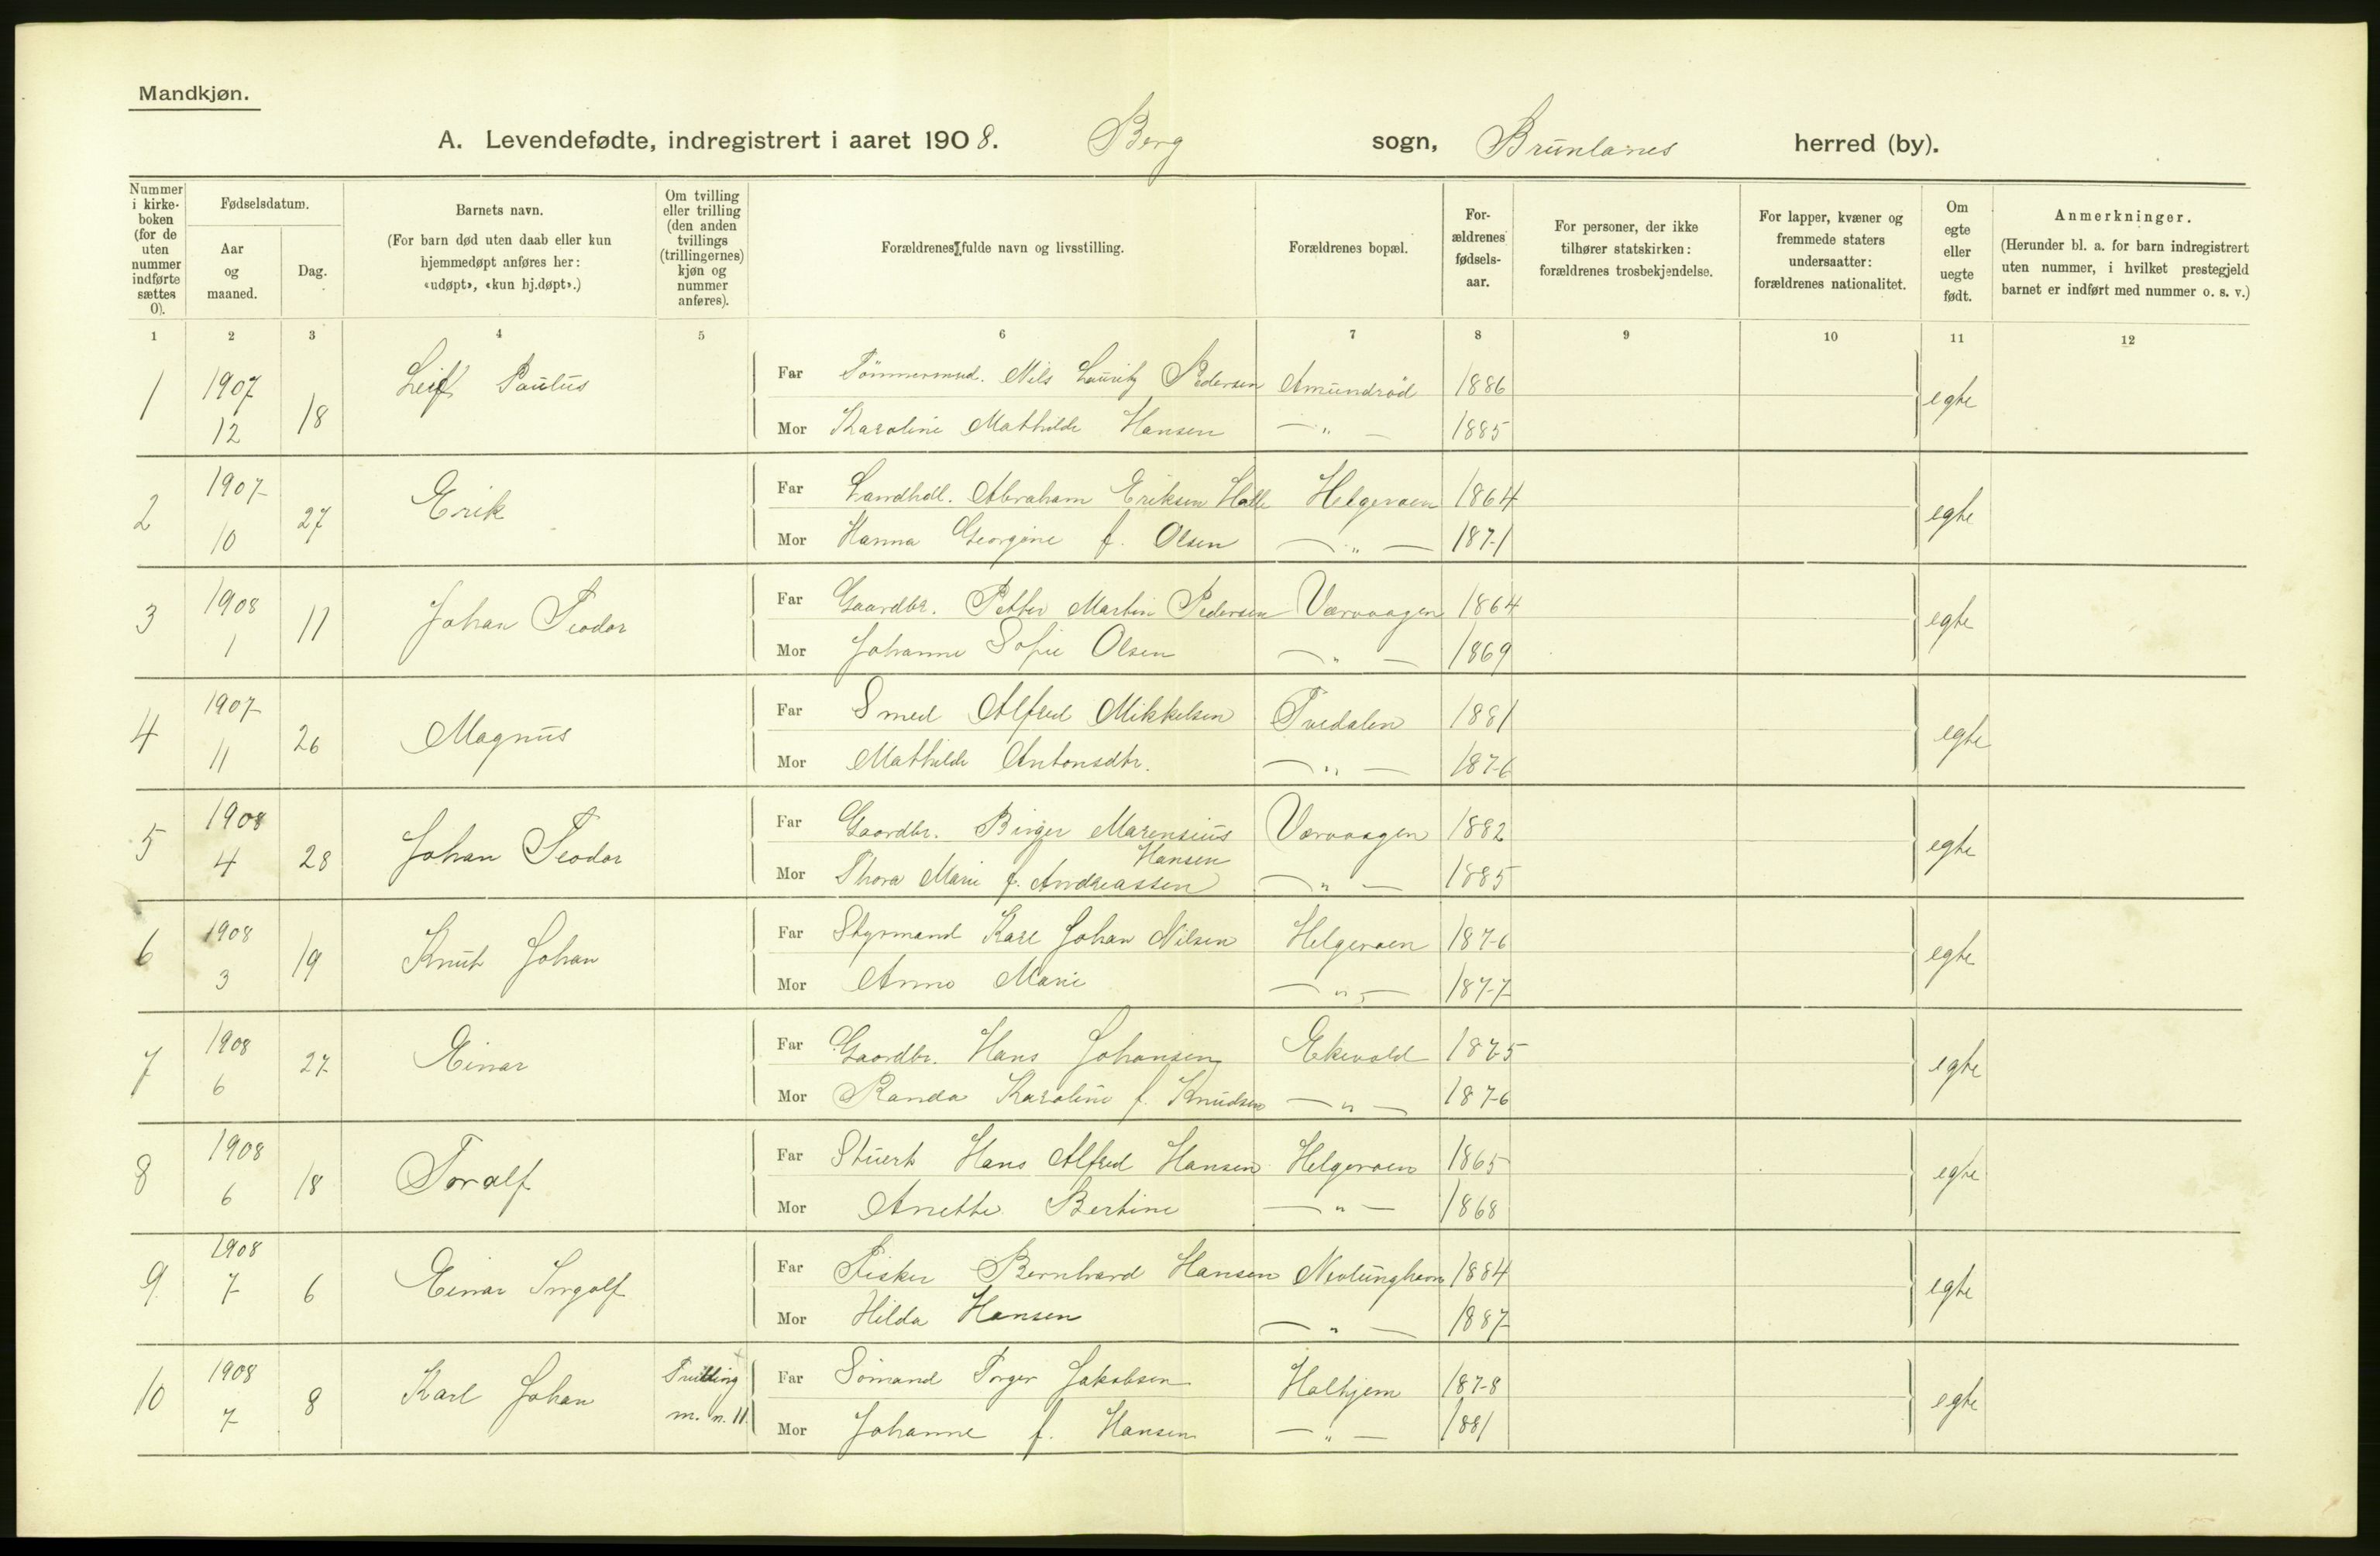 Mandkjøn.
A. Levendefødte, indregistrert i aaret 1908. Berg sogn, Brunlanes herred (by).
Nummer i kirke-boken (for de uten nummer indførte sættes 0).
Fødselsdatum.
Aar og maaned.
Dag.
Barnets navn.
(For barn død uten daab eller kun hjemmedøpt anføres her: «udøpt», «kun hj.døpt».)
Om tvilling eller trilling (den anden tvillings (trillingernes) kjøn og nummer anføres).
Forældrenes fulde navn og livsstilling.
Forældrenes bopæl.
For-ældrenes fødsels-aar.
For personer, der ikke tilhører statskirken: forældrenes trosbekjendelse.
For lapper, kvæner og fremmede staters undersaatter: forældrenes nationalitet.
Om egte eller uegte født.
Anmerkninger.
(Herunder bl. a. for barn indregistrert uten nummer, i hvilket prestegjeld barnet er indført med nummer o. s. v.)
1 2 3 4 5 6 7 8 9 10 11 12
1 1907 12 18 Leif Paulus
Far Tömmermnd. Nils Lauritz Pedersen Amundröd 1886 egte
Mor Karoline Mathilde Hansen — " — 1885
2 1907 10 27 Erik
Far Landhdl. Abraham Eriksen Halle Helgeroen 1864 egte
Mor Hanna Georgine f. Olsen — " — 1871
3 1908 1 11 Johan Teodor
Far Gaardbr. Petter Martin Pedersen Værvaagen 1864 egte
Mor Johanne Sofie Olsen — " — 1869
4 1907 11 26 Magnus
Far Smed Alfred Mikkelsen Tvedalen 1881 egte
Mor Mathilde Antonsdtr. — " — 1876
5 1908 4 28 Johan Teodor
Far Gaardbr. Birger Marensius Hansen Værvaagen 1882 egte
Mor Thora Marie f. Andreassen — " — 1885
6 1908 3 19 Knut Johan
Far Styrmand Karl Johan Nilsen Helgeroen 1876 egte
Mor Anna Marie — " — 1877
7 1908 6 27 Einar
Far Gaardbr. Hans Johansen Ekevold 1875 egte
Mor Randa Karoline f. Knudsen — " — 1876
8 1908 6 18 Toralf
Far Stuert Hans Alfred Hansen Helgeroen 1865 egte
Mor Anette Bertine — " — 1868
9 1908 7 6 Einar Ingolf
Far Fisker Bernhard Hansen Nevlunghavn 1884 egte
Mor Hilda Hansen — " — 1887
10 1908 7 8 Karl Johan Tvilling m. n. 11.
Far Sömand Torger Jakobsen Halhjem 1878 egte
Mor Johanne f. Hansen — " — 1881